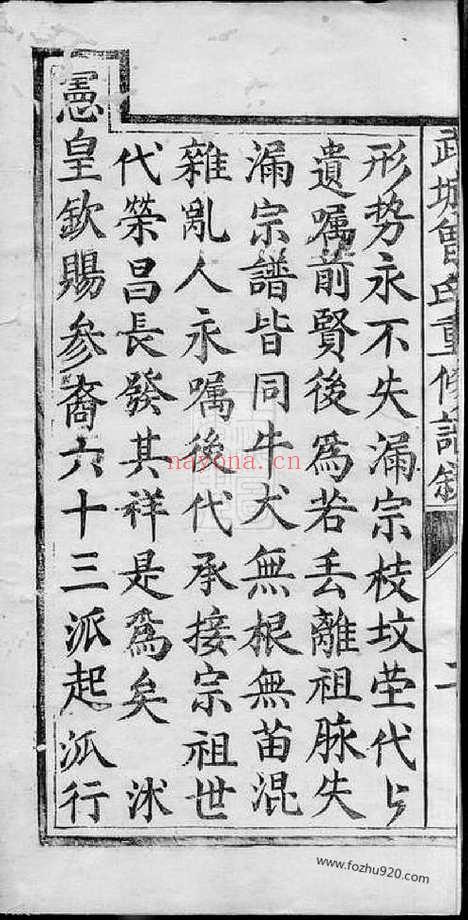 武城曾氏重修譜敘
二
形势永不失漏宗枝坟茔代々
遺嘱前賢後爲若丢離祖脉失
漏宗譜皆同牛犬無根無苗混
雜亂人永嘱後代承接宗祖世
代荣昌長發其祥是爲矣 沭
憲皇欽賜参裔六十三派起派行
nayona.cn
www.fozhu920.com